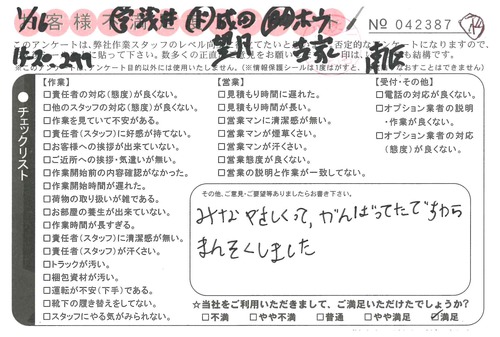 1/16
No 042387
【作業】
□責任者の対応(態度)が良くない。
□他のスタッフの対応(態度)が良くない。
□作業を見ていて不安がある。
□責任者(スタッフ)に好感が持てない。
□お客様への挨拶が出来ていない。
□ご近所への挨拶・気遣いが無い。
□作業開始前の内容確認がなかった。
□作業開始時間が遅れた。
□荷物の取り扱いが雑である。
□お部屋の養生が出来ていない。
□作業時間が長すぎる。
□責任者(スタッフ)に清潔感が無い。
□責任者(スタッフ)が汗くさい。
□トラックが汚い。
□梱包資材が汚い。
□運転が不安(下手)である。
□靴下の履き替えをしてない。
□スタッフにやる気がみられない。
【営業】
□見積もり時間に遅れた。
□見積もり時間が長い。
□営業マンに清潔感が無い。
□営業マンが煙草くさい。
□営業マンが汗くさい。
□営業態度が良くない。
□営業の説明と作業が一致してない。
【受付・その他】
□電話の対応が良くない。
□オプション業者の説明
・作業が良くない。
□オプション業者の対応
(態度)が良くない。
チェックリスト
その他、ご意見・ご要望等ありましたらお書き下さい。
みなやさしくって、がんばってたですから
まんぞくしました
☆当社をご利用いただきまして、ご満足いただけたでしょうか?
□不満 □やや不満 □普通 □やや満足 ☑満足